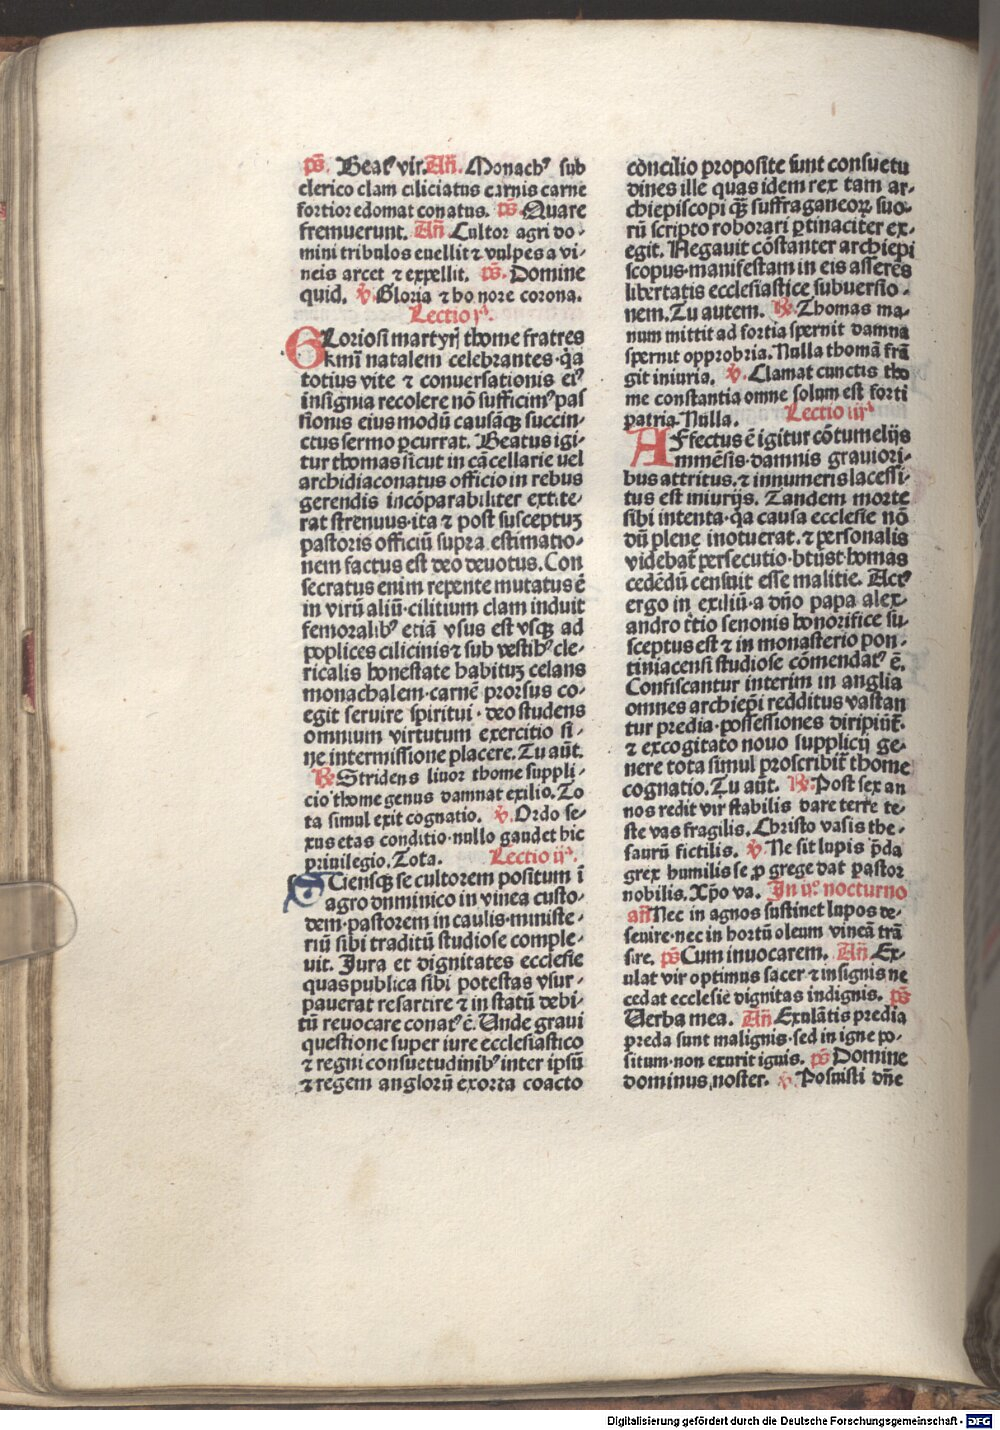 p̄s. Beatꝰ vir. Añ. Monachꝰ sub
clerico clam ciliciatus carnis carne
fortior edomat conatus. p̄s. Quare
fremuerunt. Añ Cultor agri do-
mini tribulos euellit ⁊ vulpes a vi-
neis arcet ⁊ expellit. p̄s. Domine
quid. ℣. Gloria ⁊ honore corona.
Lectio jª.
GLoriosi martyrꝭ thome fratres
kmī natalem celebrantes·q̄a
totius vite ⁊ conuersationis eiꝰ
insignia recolere nō sufficimꝰ pas
sionis eius modū causāqꝫ succin-
ctus sermo ꝑcurrat. Beatus igi-
tur thomas sicut in cācellarie uel
archidiaconatus officio in rebus
gerendis incōparabiliter extite-
rat strenuus·ita ⁊ post susceptuꝫ
pastoris officiū supra estimatio-
nem factus est deo deuotus. Con
secratus enim repente mutatus ē
in virū aliū·cilitium clam induit
femoralibꝰ etiā vsus est vsqꝫ ad
poplices cilicinis ⁊ sub vestibꝰ cle-
ricalis honestate habituꝫ celans
monachalem·carnē prorsus co-
egit seruire spiritui·deo studens
omnium virtutum exercitio si-
ne intermissione placere. Tu aūt.
℟ Stridens liuor thome suppli-
cio thome genus damnat exilio. To
ta simul exit cognatio. ℣. Ordo se-
xus etas conditio·nullo gaudet hic
priuilegio. Tota. Lectio ijª.
STiensqꝫ se cultorem positum ī
agro dnminico in vinea custo-
dem·pastorem in caulis·ministe-
riū sibi traditū studiose comple-
uit. Jura et dignitates ecclesie
quas publica sibi potestas vsur-
pauerat resartire ⁊ in statū debi-
tū reuocare conatꝰ ē. Unde graui
questione super iure ecclesiastico
⁊ regni consuetudinibꝰ inter ipsū
⁊ regem anglorū exorta coacto
concilio proposite sunt consuetu
dines ille quas idem rex tam ar-
chiepiscopi qꝫ suffraganeoꝝ suo-
rū scripto roborari ꝑtinaciter ex-
egit. Negauit cōstanter archiepi
scopus·manifestam in eis asserēs
libertatis ecclesiastice subuersio-
nem. Tu autem. ℟. Thomas ma-
num mittit ad fortia spernit damna
spernit opprobria. Nulla thomā frā
git iniuria. ℣. Clamat cunctis tho
me constantia omne solum est forti
patria. Nulla. Lectio iijª
AFfectus ē igitur cōtumelijs
immēsis·damnis grauiori-
bus attritus. ⁊ innumeris lacessi-
tus est iniurijs. Tandem morte
sibi intenta·q̄a causa ecclesie nō
dū plene inotuerat. ⁊ personalis
videbat᷑ persecutio·btūst·homas
cedēdū censuit esse malitie. Actꝰ
ergo in exiliū·a dn̄o papa alex-
andro t̄tio senonis honorifice su-
sceptus est ⁊ in monasterio pon-
tiniacensi studiose cōmendatꝰ ē.
Confiscantur interim in anglia
omnes archiepī redditus vastan
tur predia·possessiones diripiūt᷑.
⁊ excogitato nouo supplicij ge-
nere tota simul proscribit᷑ thome
cognatio. Tu aūt. ℟. Post sex an
nos redit vir stabilis dare terre te-
ste vas fragilis. Christo vasis the-
saurū fictilis. ℣. Ne sit lupis p̄da
grex humilis se ꝓ grege dat pastor
nobilis. Xp̄o va. In ijº. nocturno
añ Nec in agnos sustinet lupos de-
seuire·nec in hortū oleum vineā trā
sire. p̄s Cum inuocarem. Añ Ex-
ulat vir optimus sacer ⁊ insignis ne
cedat ecclesie dignitas indignis. p̄s
Uerba mea. Añ Exulātis predia
preda sunt malignis·sed in igne po-
situm·non exurit ignis. p̄s Domine
dominus noster. ℣. Posuisti dn̄e
Digitalisierung gefördert durch die Deutsche Forschungsgemeinschaft - DFG